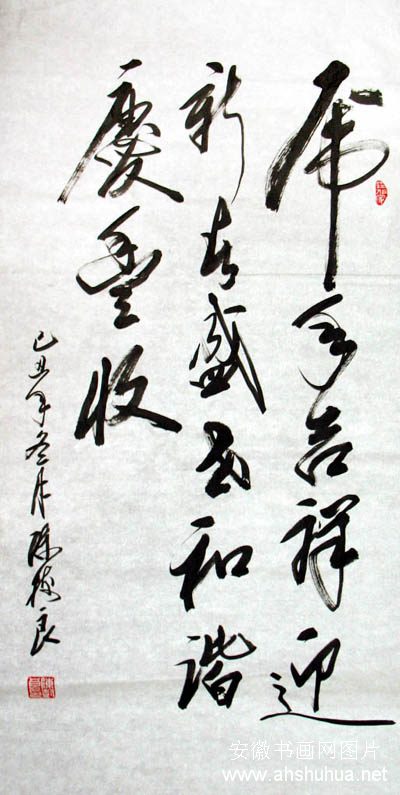 虎年吉祥迎
新春盛世和谐
慶豊收
己丑年冬月陈德良
安徽书画网图片
www.ahshuhua.net